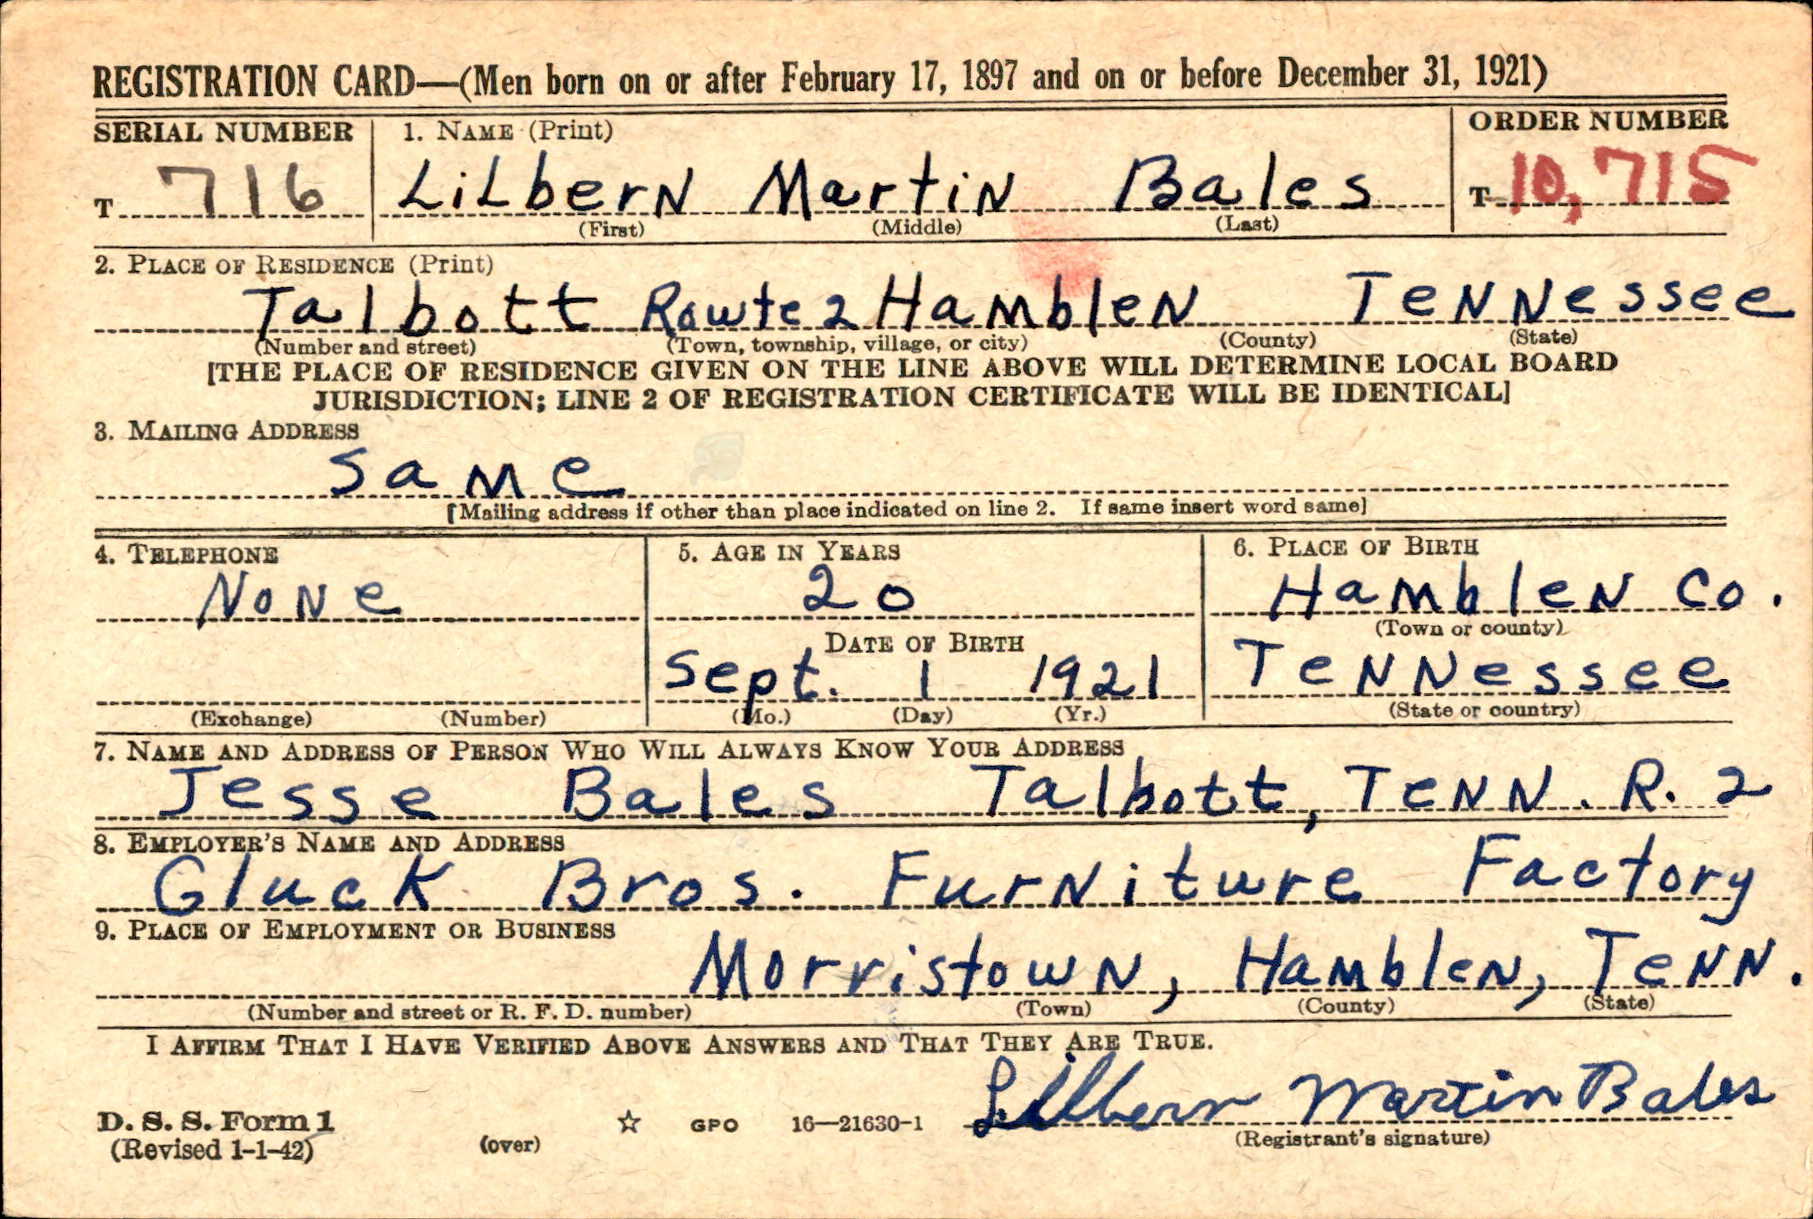 REGISTRATION CARD—(Men born on or after February 17, 1897 and on or before December 31, 1921)
SERIAL NUMBER 1. NAME (Print) ORDER NUMBER
T 716 Lilbern Martin Bales T 10,715
(First) (Middle) (Last)
2. PLACE OF RESIDENCE (Print)
Talbott Route 2 Hamblen Tennessee
(Number and street) (Town, township, village, or city) (County) (State)
[THE PLACE OF RESIDENCE GIVEN ON THE LINE ABOVE WILL DETERMINE LOCAL BOARD
JURISDICTION; LINE 2 OF REGISTRATION CERTIFICATE WILL BE IDENTICAL]
3. MAILING ADDRESS
Same
[Mailing address if other than place indicated on line 2. If same insert word same]
4. TELEPHONE 5. AGE IN YEARS 6. PLACE OF BIRTH
None 20 Hamblen Co.
DATE OF BIRTH (Town or county)
Sept. 1 1921 Tennessee
(Exchange) (Number) (Mo.) (Day) (Yr.) (State or country)
7. NAME AND ADDRESS OF PERSON WHO WILL ALWAYS KNOW YOUR ADDRESS
Jesse Bales Talbott, Tenn. R. 2
8. EMPLOYER'S NAME AND ADDRESS
Gluck Bros. Furniture Factory
9. PLACE OF EMPLOYMENT OR BUSINESS
Morristown, Hamblen, Tenn.
(Number and street or R. F. D. number) (Town) (County) (State)
I AFFIRM THAT I HAVE VERIFIED ABOVE ANSWERS AND THAT THEY ARE TRUE.
Lilbern Martin Bales
D. S. S. Form 1 ☆ GPO 16—21630-1
(Revised 1-1-42) (over) (Registrant's signature)